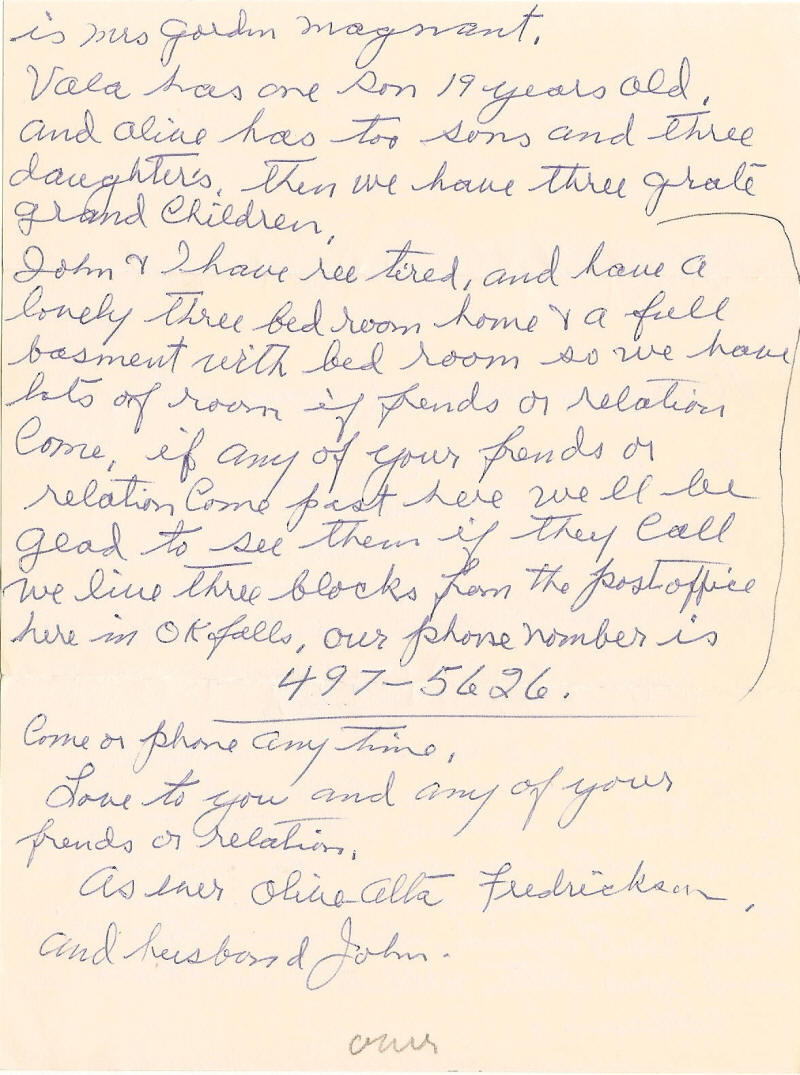 is mrs Gordon Magnant.
Vala has one son 19 years old,
and Olive has too sons and three
daughters, then we have three grate
grand Children,
John & I have ree tired, and have a
lovely three bed room home & a full
basment with bed room so we have
lots of room if frends or relation
Come, if any of your frends or
relation Come past here we'll be
glad to see them if they Call
we live three blocks from the post office
here in OK falls, our phone number is
497-5626.
Come or phone any time,
Love to you and any of your
frends or relation,
As ever Olive Alta Fredrickson,
and husband John.
over